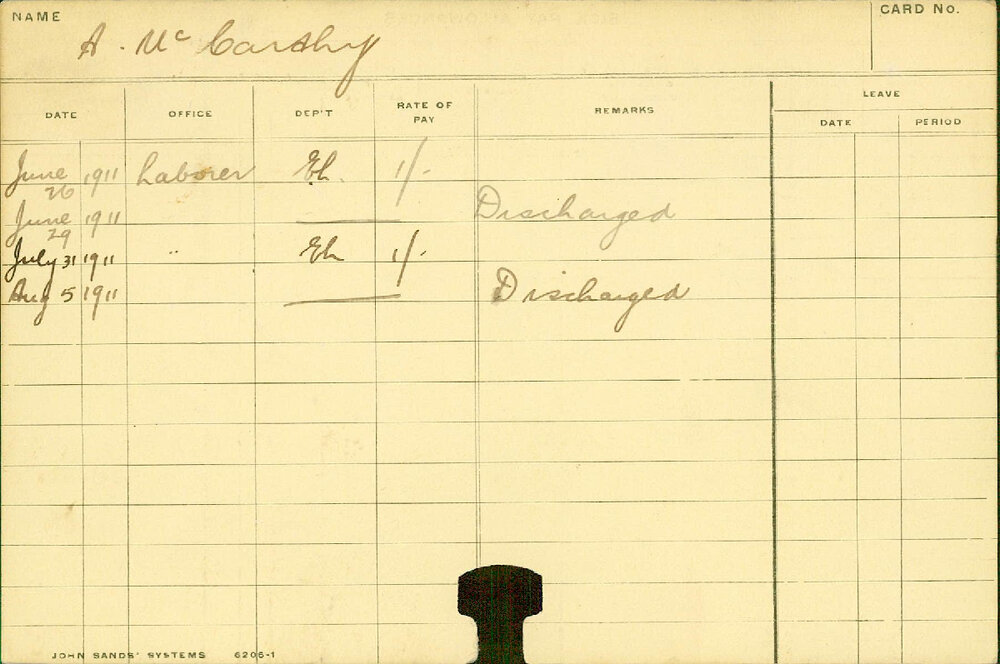 NAME A. McCarthy CARD No.
DATE OFFICE DEP'T RATE OF PAY REMARKS LEAVE
DATE PERIOD
June 26 1911 Laborer Eh. 1/-
June 29 1911 Discharged
July 31 1911 " Eh 1/-
Aug 5 1911 Discharged
JOHN SANDS' SYSTEMS 6206-1